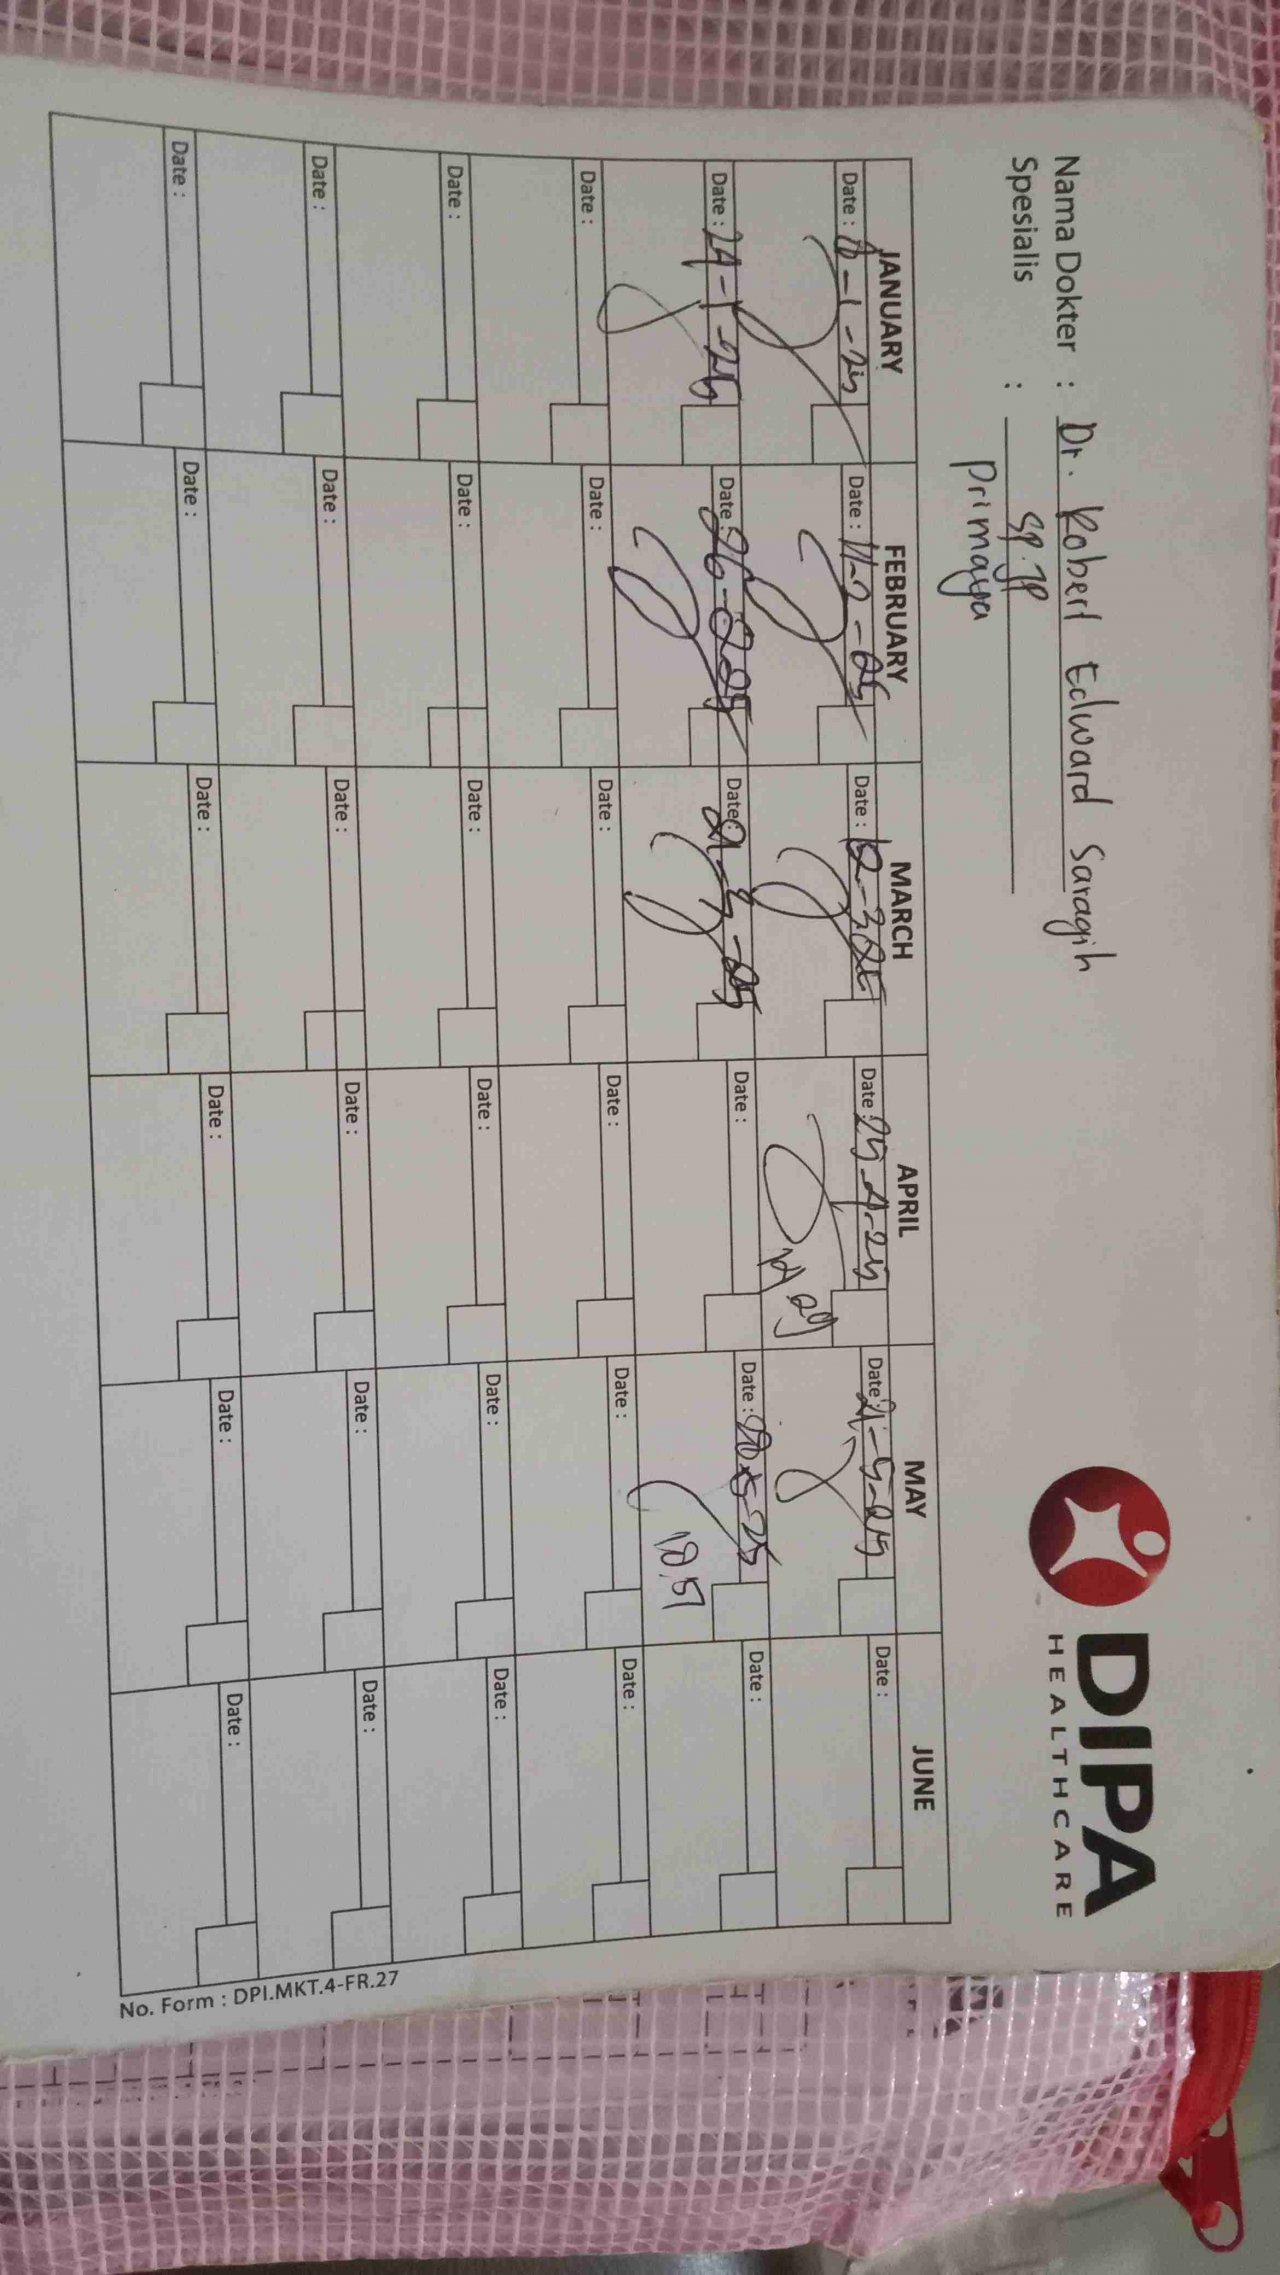 DIPA
HEALTHCARE
Nama Dokter : Dr. Robert Edward Saragih
Spesialis : Sp.JP
Primaya
JANUARY FEBRUARY MARCH APRIL MAY JUNE
Date : -1-25 Date : 11-2-25 Date : 12-3-25 Date : 25-4-25 Date : 21-5-25 Date :
Date : 24-1-25 Date : 26-2-25 Date : 21-3-25 Date : Date : -5-25 Date :
Date : Date : Date : Date : Date : Date :
Date : Date : Date : Date : Date : Date :
Date : Date : Date : Date : Date : Date :
Date : Date : Date : Date : Date : Date :
No. Form : DPI.MKT.4-FR.27